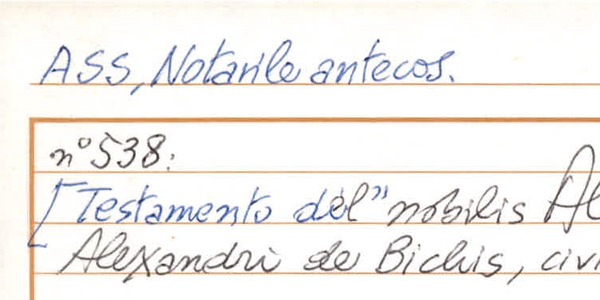 ASS, Notarile antecos.
n° 538:
[Testamento del "nobilis
Alexandri de Bichis, civi